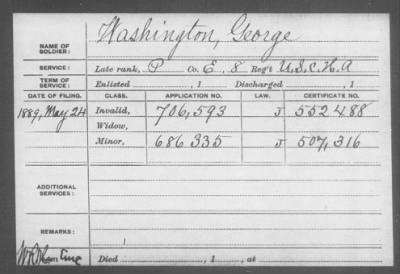 NAME OF SOLDIER: Washington, George
SERVICE: Late rank, P Co. E, 8 Reg't U.S.C.H.A
TERM OF SERVICE: Enlisted , 1 Discharged , 1
DATE OF FILING. CLASS. APPLICATION NO. LAW. CERTIFICATE NO.
1889, May 24 Invalid, 706,593 J 552488
Widow,
Minor, 686335 J 507,316
ADDITIONAL SERVICES:
REMARKS:
Died , 1 , at